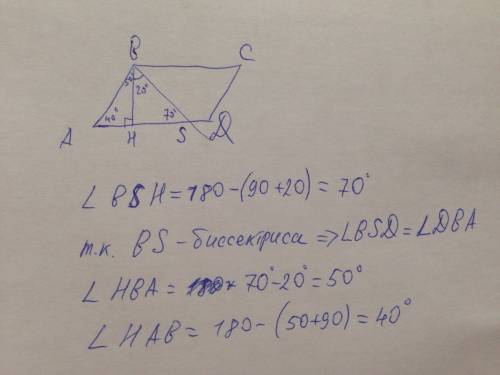 B C
50° 20°
40° 70°
A H S D
∠ BSH = 180 - (90 + 20) = 70°
т.к. BS - биссектриса ⇒ ∠BSD = ∠DBA
∠ HBA = 70° - 20° = 50°
∠ HAB = 180 - (50 + 90) = 40°